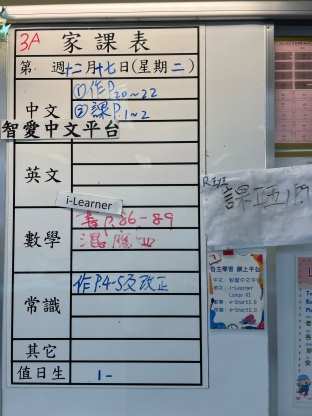 3A 家課表
第 週十二月十七日(星期二)
中文
①作P.20~22
②課P.1~2
智愛中文平台
英文
i-Learner
數學
書P.86-89
常識
作P.4-5及改正
其它
值日生 1-
自主學習 網上平台
中文：智愛中文平台
i-Learner